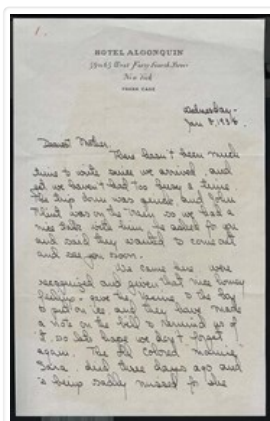 1.
HOTEL ALGONQUIN
59 to 65 West Forty Fourth Street
New York
FRANK CASE
Wednesday -
Jan 5, 1938
Dearest Mother,
There hasn't been much
time to write since we arrived and
yet we haven't had too heavy a time.
The trip down was quick and John
was on the train so we had a
nice talk with him. He asked for you
and said they wanted to come out
and see you soon.
We came here were
recognized and given that nice homey
feeling - gave the to the boy
to put on ice, and they have made
a note on the bill to remind us of
it, so lets hope we don't forget
again. The old colored
Sara died three days ago and
is being sadly missed for she